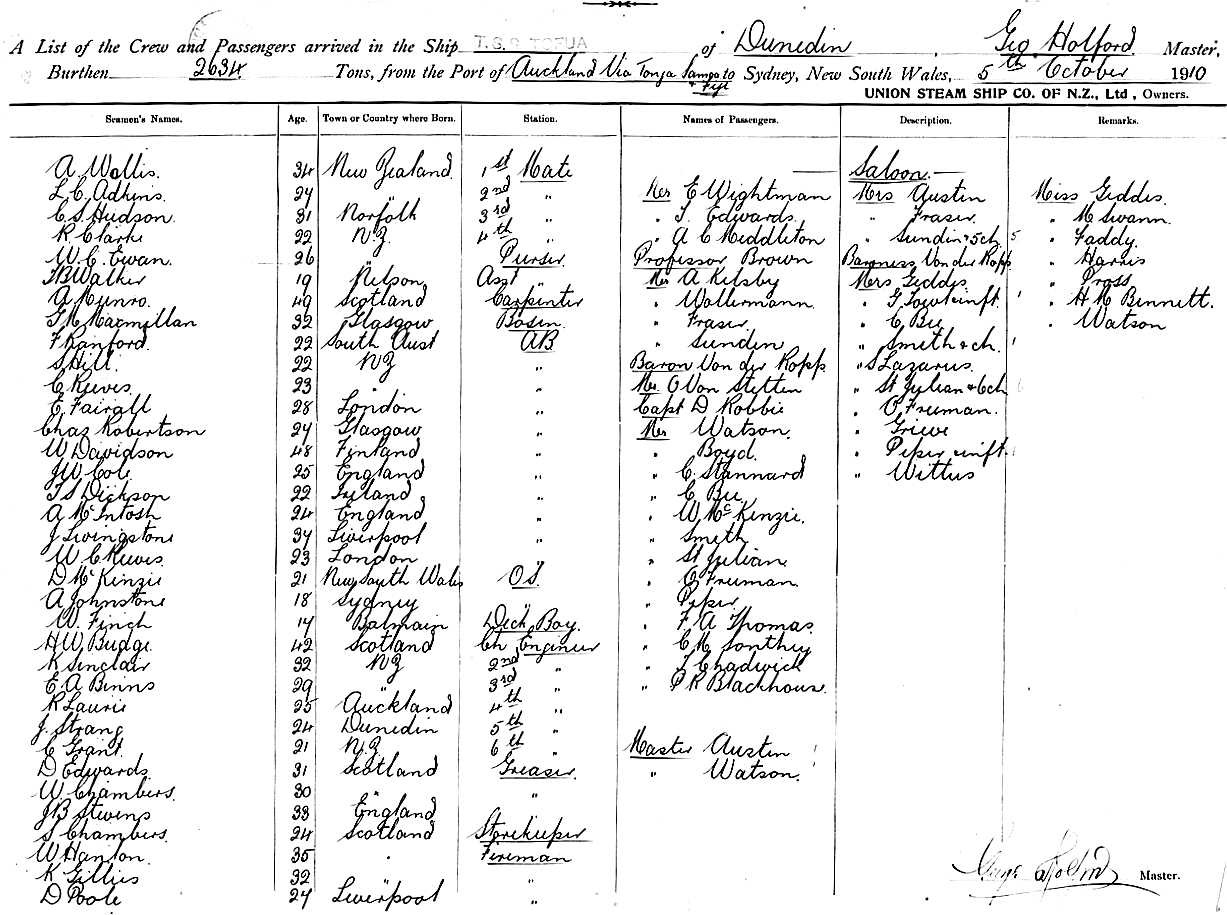 A List of the Crew and Passengers arrived in the Ship T.S.S TOFUA of Dunedin, Geo Holford. Master,
Burthen 2634 Tons, from the Port of Auckland Via Tonga Samoa & Fiji to Sydney, New South Wales, 5th October 1910
UNION STEAM SHIP CO. OF N.Z., Ltd, Owners.
Seamen's Names. Age. Town or Country where Born. Station. Names of Passengers. Description. Remarks.
A Wallis. 34 New Zealand. 1st Mate Saloon.
L C Adkins. 27 " 2nd " Mr E Wightman Mrs Austin Miss Geddes.
C S Hudson. 31 Norfolk 3rd " " J. Edwards. " Fraser. " McSwann.
R Clarke 22 N.Z. 4th " " A C Middleton " Sundin & 5 ch. 5 " Faddy.
W. C. Ewan. 26 " Purser. Professor Brown Baroness Von der Ropp " Harris
F B Walker 19 Nelson Asst " Mr A Kelsby Mrs Geddes " Pross
A Munro. 49 Scotland Carpenter " Wallermann. " F Lowe & inft. 1 " H M Bennett.
G M Macmillan 32 Glasgow Bosun. " Fraser " C Bee " Watson
F Ranford. 22 South Aust AB " Sunden " Smith & ch. 1
S Hill. 22 NZ " Baron Von der Ropp " S Lazarus.
C Reeves 23 " " Mr O Von Stetten " St Julian & 6 ch
E Fairall 28 London " Capt D Robbie " O Freeman.
Chas Robertson 27 Glasgow " Mr Watson. " Grieve
W Davidson 48 Finland " " Boyd. " Peper & inft.
J W Cole 25 England " " C Stannard " Wittus
T S Dickson 22 Ireland " " C Bee
A McIntosh 24 England " " W McKenzie.
J Livingstone 37 Liverpool " " Smith
W C Reeves. 23 London " " St Julian
D McKenzie 21 New South Wales O.S. " O Freeman.
A Johnstone 18 Sydney " " Peper
W. Finch 17 Balmain Deck Boy. " F A Thomas.
H W Budge. 42 Scotland Ch Engineer " C M Sonthey
K Sinclair 32 NZ 2nd " " T Chadwick
E A Binns 29 " 3rd " " P R Blackhouse.
R Laurie 25 Auckland 4th "
J. Strang 24 Dunedin 5th "
C Grant. 21 N.Z. 6th " Master Austin 1
D Edwards. 31 Scotland Greaser. " Watson. 1
W Chambers. 30 " "
J B Stevens 33 England "
S Chambers. 24 Scotland Storekeeper
W Hanton. 35 " Fireman
K Gillies 32 " "
D Poole 27 Liverpool "
Master.